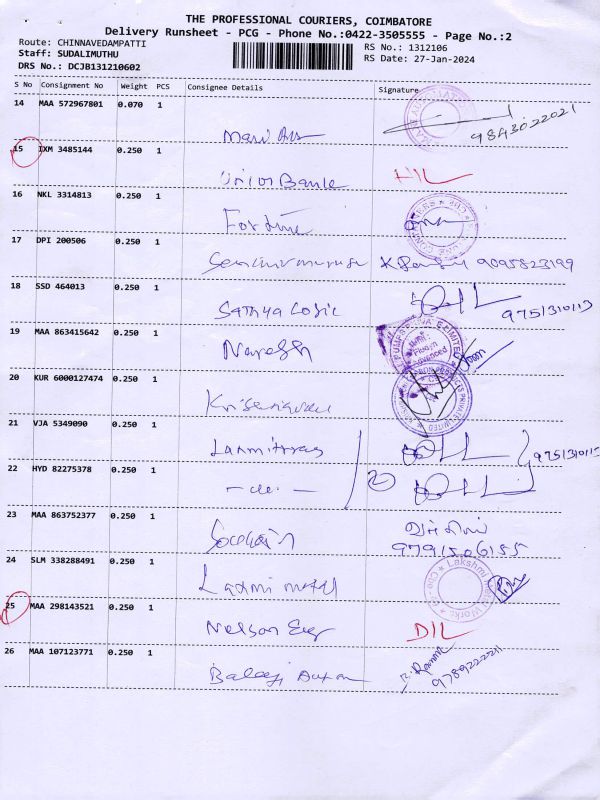 THE PROFESSIONAL COURIERS, COIMBATORE
Delivery Runsheet - PCG - Phone No.:0422-3505555 - Page No.:2
Route: CHINNAVEDAMPATTI
RS No.: 1312106
Staff: SUDALIMUTHU
RS Date: 27-Jan-2024
DRS No.: DCJB131210602
S No Consignment No Weight PCS Consignee Details Signature
14 MAA 572967801 0.070 1
9843022021
15 IXM 3485144 0.250 1
Union Bank
16 NKL 3314813 0.250 1
Fortune
17 DPI 200506 0.250 1
9095823199
18 SSD 464013 0.250 1
Sathya Logic 9751310113
19 MAA 863415642 0.250 1
Naresh
20 KUR 6000127474 0.250 1
21 VJA 5349090 0.250 1
9751310113
22 HYD 82275378 0.250 1
- do - 2
23 MAA 863752377 0.250 1
9791506155
24 SLM 338288491 0.250 1
Laxmi Metal
25 MAA 298143521 0.250 1
Nelson Eng DIL
26 MAA 107123771 0.250 1
Balaji Autom
9789222211